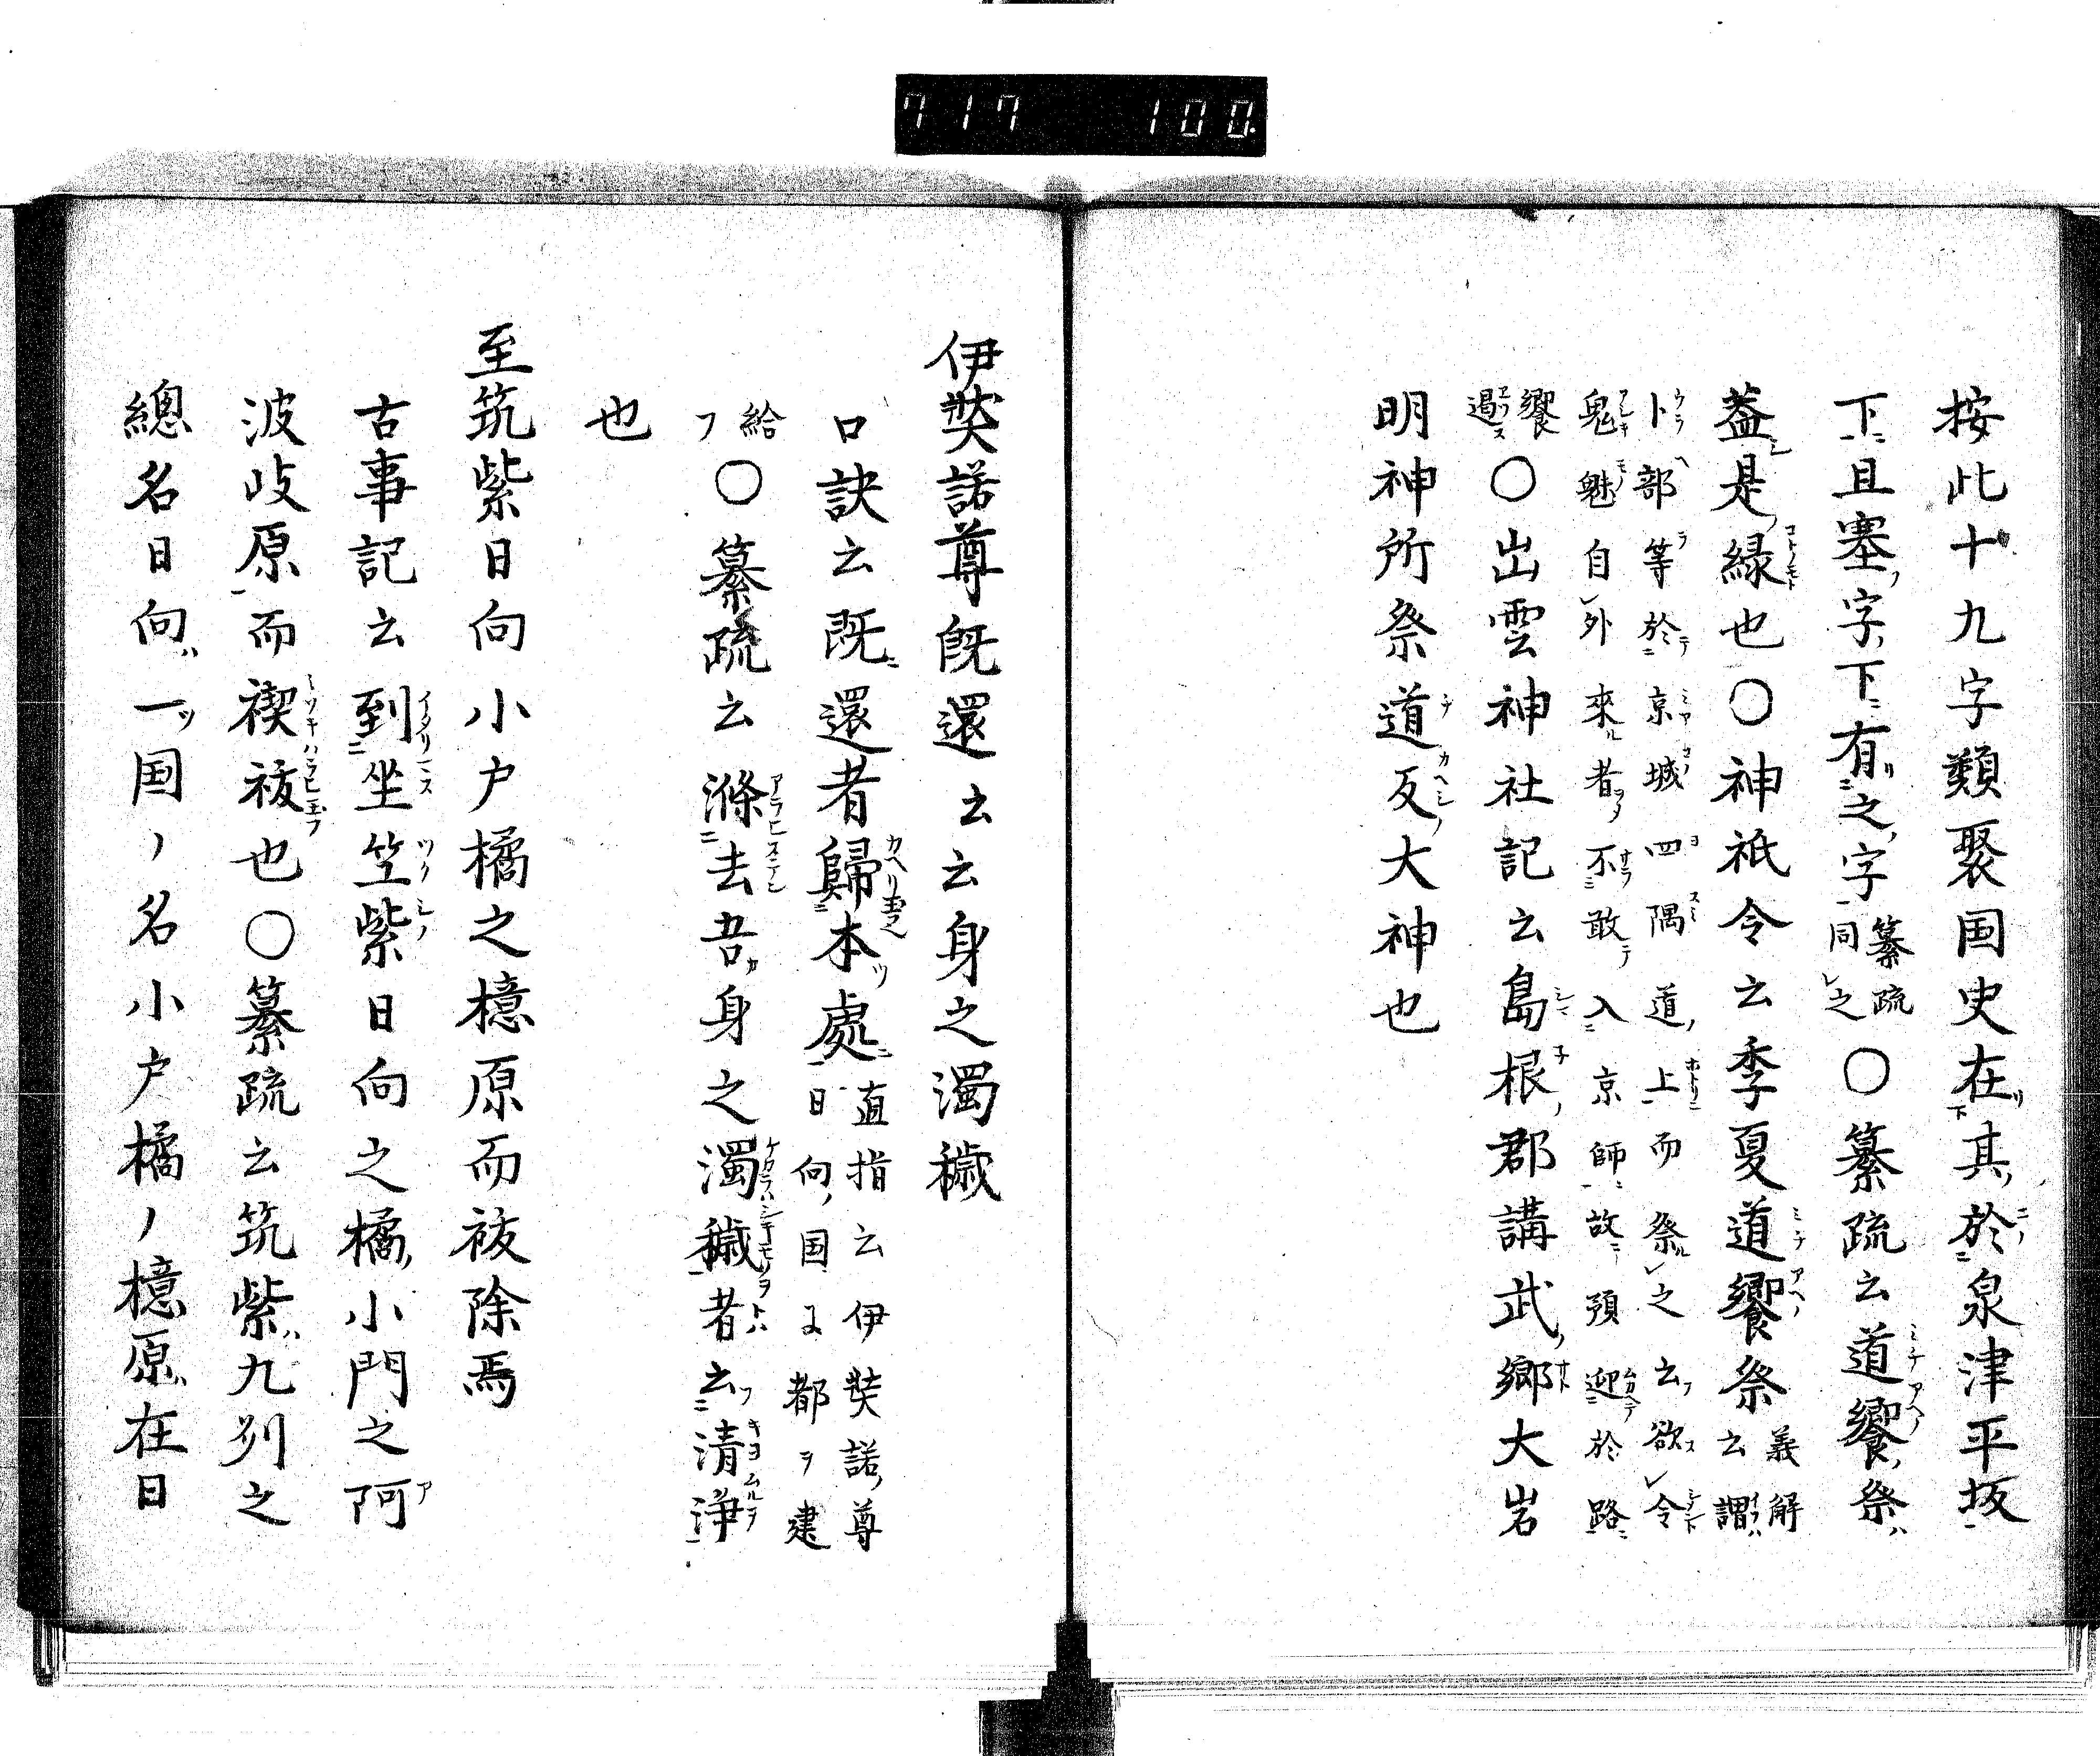 717 100.
按此十九字類聚国史在其於泉津平坂
下且塞字下有之字纂疏同之〇纂疏云道饗祭
蓋是緑也〇神祇令云季夏道饗祭義解云謂
卜部等於京城四隅道上而祭之云欲令
鬼魅自外來者不敢入京師故預迎於路
饗遏〇出雲神社記云島根郡講武郷大岩
明神所祭道反大神也
伊弉諾尊既還云云身之濁穢
口訣云既還者歸本處直指云伊弉諾尊日向国ニ都ヲ建
給フ〇纂疏云滌去吾身之濁穢者云清浄
也
至筑紫日向小戸橘之檍原而祓除焉
古事記云到坐竺紫日向之橘小門之阿
波岐原而禊祓也〇纂疏云筑紫ハ九列之
總名日向ハ一ツ国ノ名小戸橘ノ檍原ハ在日